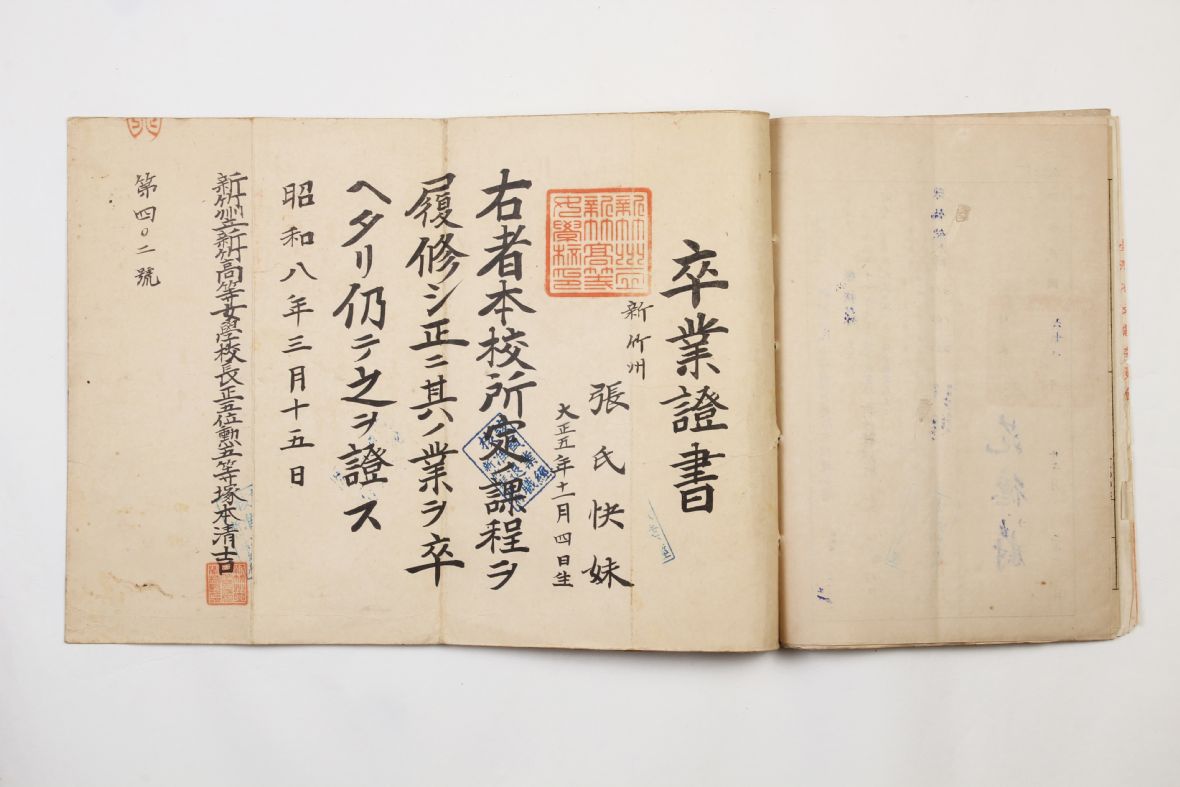 卒業證書
新竹州
張氏快妹
大正五年十一月四日生
新竹州立
新竹高等
女學校印
右者本校所定ノ課程ヲ
履修シ正ニ其ノ業ヲ卒
ヘタリ仍テ之ヲ證ス
昭和八年三月十五日
新竹州立新竹高等女學校長正五位勲五等塚本清吉
第四〇二號